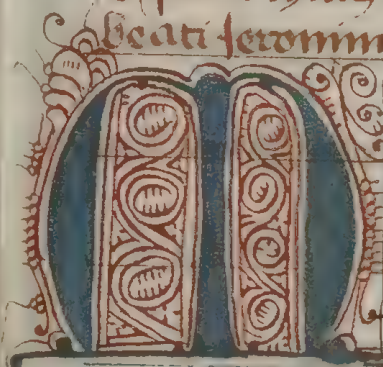 beati Jeronim
M